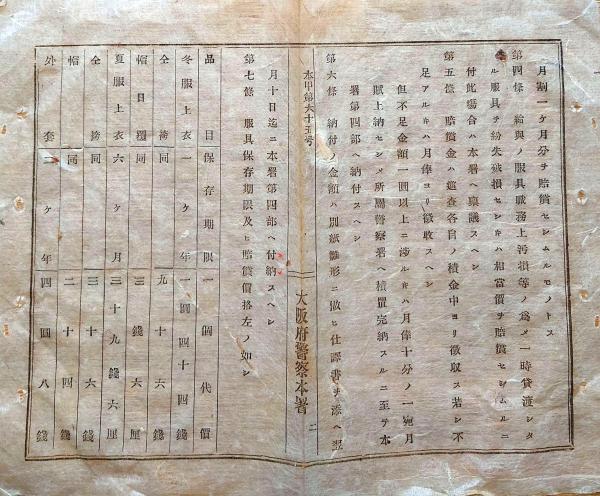 月割一ケ月分ヲ賠償セシムルモノトス
第四條 給與ノ服具職務上汚損等ノ爲メ一時貸渡シタ
ル服具ヲ紛失破損セシキハ相當價ヲ賠償セシムルニ
付此場合ハ本署ヘ稟議スヘシ
第五條 賠償金ハ巡査各自ノ積金中ヨリ徴収ス若シ不
足アルキハ月俸ヨリ徴收スヘシ
但不足金額一圓以上ニ渉ルキハ月俸十分ノ一宛月
賦上納セシメ所屬警察署ヘ積置完納スルニ至テ本
署第四部ヘ納付スヘシ
第六條 納付ノ金額ハ別紙雛形ニ倣ヒ仕譯書ヲ添ヘ翌
本甲第六十五号
大阪府警察本署
二
月十日迄ニ本署第四部ヘ付納スヘシ
第七條 服具保存期限及ヒ賠償價格左ノ如シ
品目 保存期限 一個代價
冬服上衣 一ケ年 一圓四十四錢
仝 袴 同 九十六錢
帽日覆 同 三錢六厘
夏服上衣 六ケ月 三十九錢六厘
仝 袴 同 三十六錢
帽 同 二十四錢
外套 二ケ年 四圓八錢